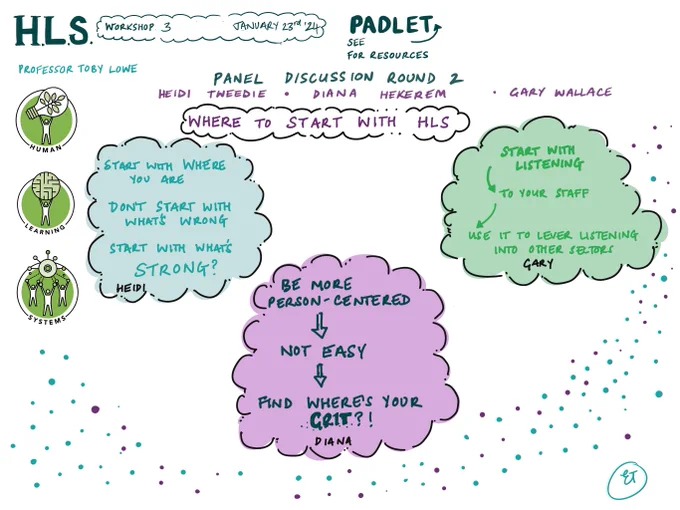 H.L.S.
WORKSHOP 3 JANUARY 23rd '24
PADLET
SEE
FOR RESOURCES
PROFESSOR TOBY LOWE
PANEL DISCUSSION ROUND 2
HEIDI TWEEDIE • DIANA HEKEREM • GARY WALLACE
WHERE TO START WITH HLS
HUMAN
LEARNING
SYSTEMS
START WITH WHERE
YOU ARE
DON'T START WITH
WHAT'S WRONG
START WITH WHAT'S
STRONG?
HEIDI
BE MORE
PERSON-CENTERED
NOT EASY
FIND WHERE'S YOUR
GRIT?!
DIANA
START WITH
LISTENING
TO YOUR STAFF
USE IT TO LEVER LISTENING
INTO OTHER SECTORS
GARY